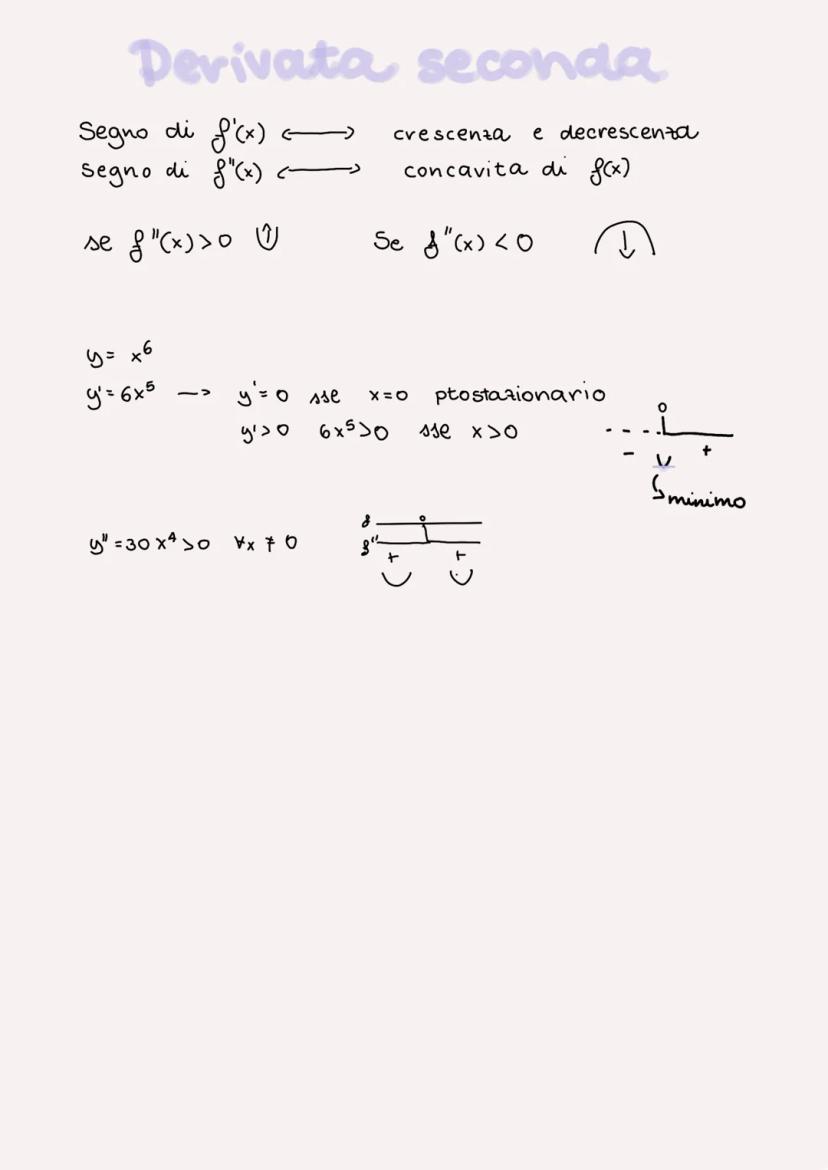 Derivata seconda
Segno di f'(x) ⟷ crescenza e decrescenza
segno di f"(x) ⟷ concavita di f(x)
se f"(x)>0 Se f"(x)<0
y= x⁶
y'=6x⁵ → y'=0 sse x=0 ptostazionario
y'>0 6x⁵>0 sse x>0
0
- +
minimo
y"=30x⁴>0 ∀x≠0
f 0
f"
+ +